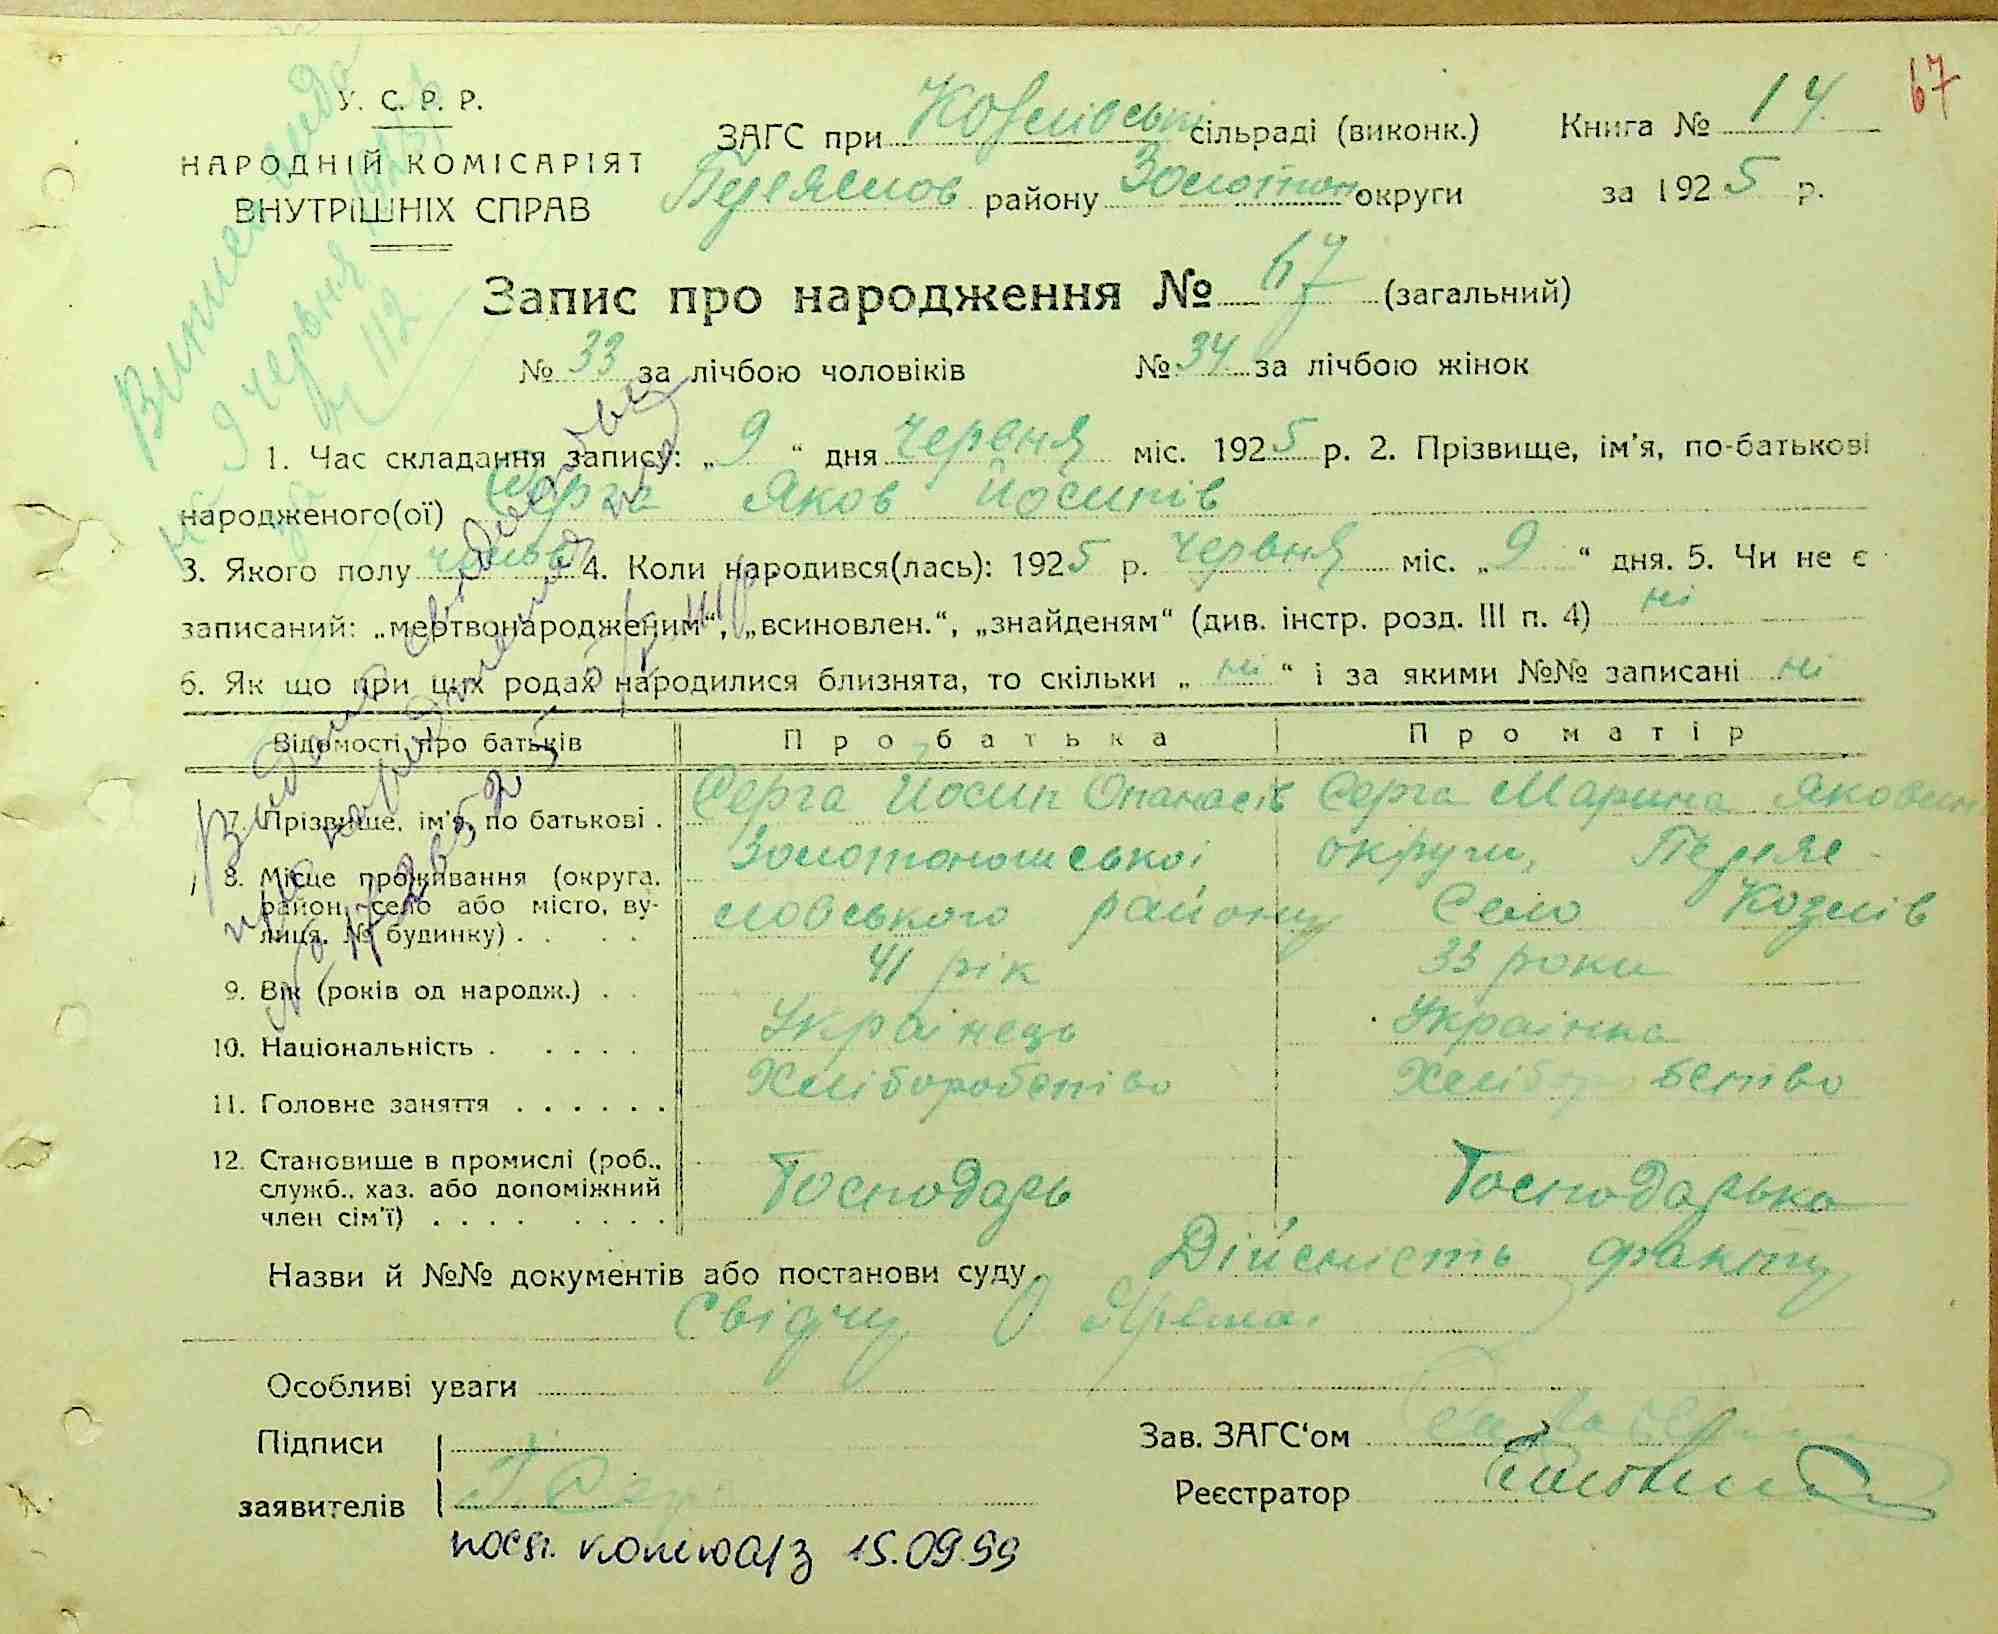 67
У. С. Р. Р.
НАРОДНІЙ КОМІСАРІЯТ
ВНУТРІШНІХ СПРАВ
ЗАГС при Козлівські сільраді (виконк.) Книга № 14.
Переяслов району Золотон округи за 1925 р.
Запис про народження № 67 (загальний)
№ 33 за лічбою чоловіків № 34 за лічбою жінок
1. Час складання запису: „9“ дня червня міс. 1925 р. 2. Прізвище, ім'я, по-батькові
народженого(ої) Серга Яков Йосипів
3. Якого полу чолов 4. Коли народився(лась): 1925 р. червня міс. „9“ дня. 5. Чи не є
записаний: „мертвонародженим“, „всиновлен.“, „знайденям“ (див. інстр. розд. III п. 4) ні
6. Як що при цих родах народилися близнята, то скільки „ні“ і за якими №№ записані ні
Відомості про батьків Про батька Про матір
7. Прізвише, ім'я, по батькові . Серга Йосип Опанасів Серга Марина Яковин
8. Місце проживання (округа, район, село або місто, ву-лиця, № будинку) . . . . Золотоношської округи, Переяс-
ловського району Село Козлів
9. Вік (років од народж.) . . 41 рік 33 роки
10. Національність . . . . . Українець Українка
11. Головне заняття . . . . . . Хліборобство Хліборобство
12. Становише в промислі (роб., служб., хаз. або допоміжний член сім'ї) . . . . . . . . Господарь Господарька
Назви й №№ документів або постанови суду Дійсність факту
Свідчу О Ярема
Особливі уваги
Підписи
заявителів
Зав. ЗАГС‘ом
Реєстратор
9 червня
№ 112
Видані свідоцтва
про народження
посв. копією а/з 15.09.99